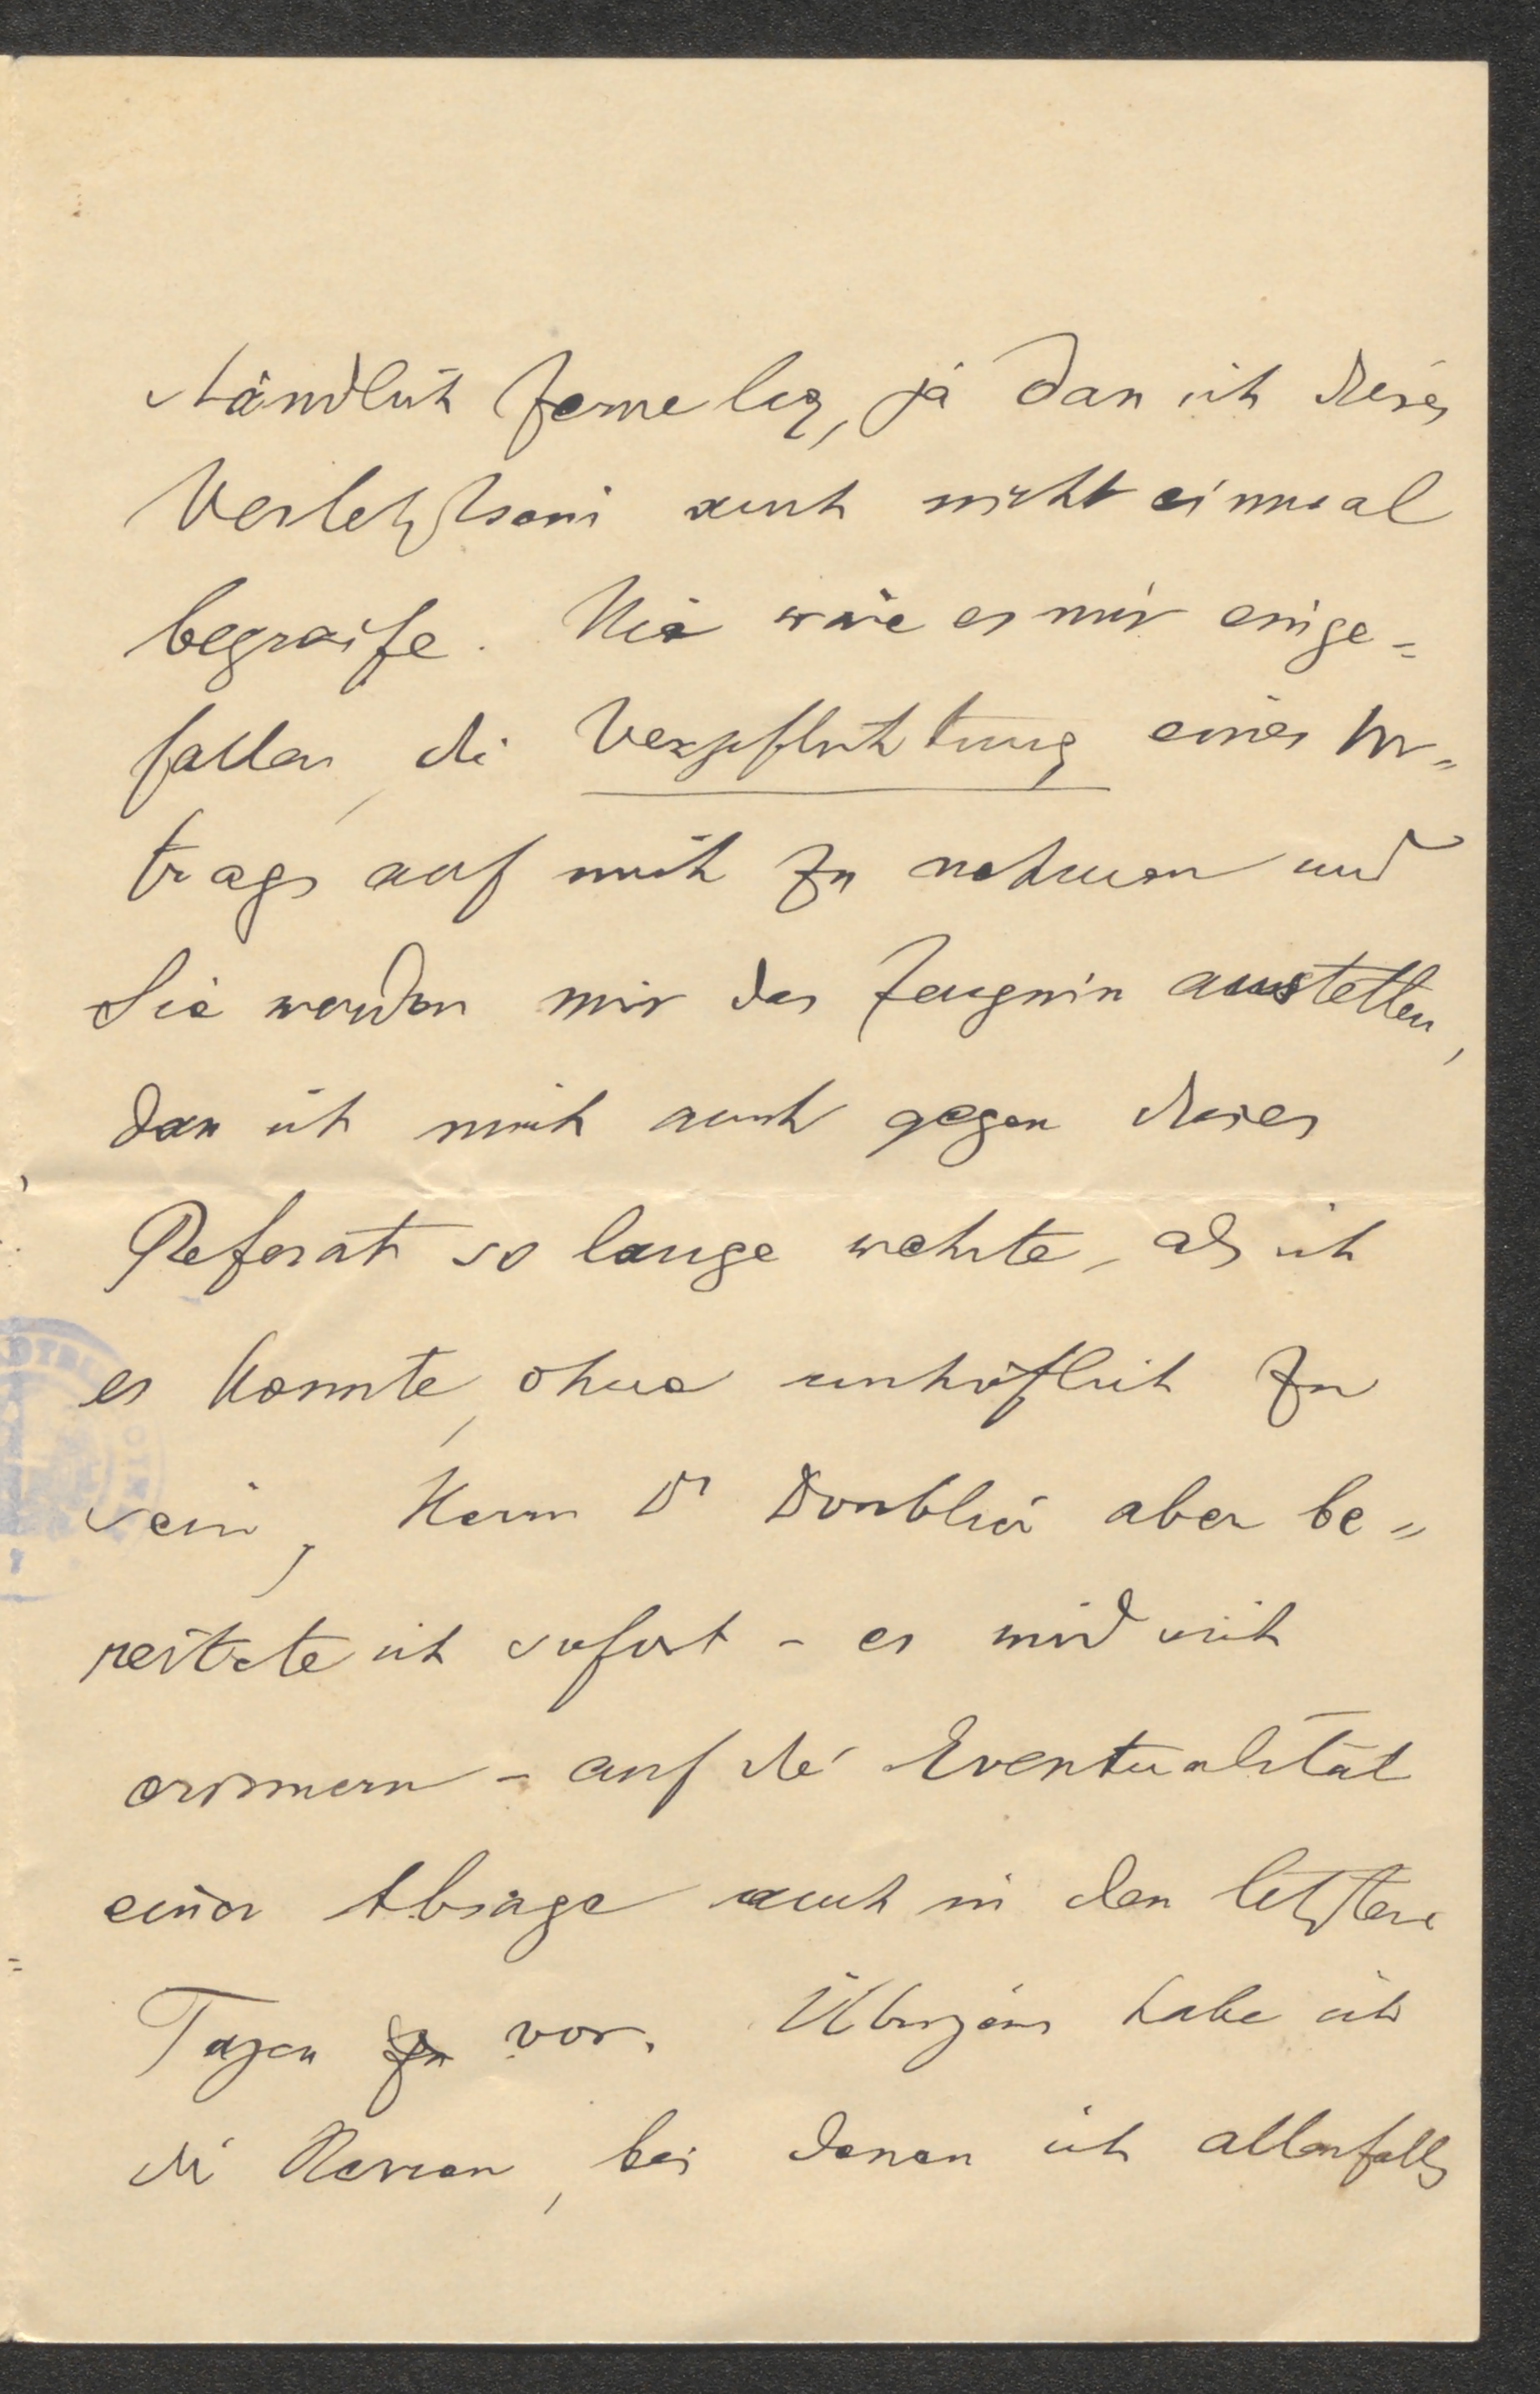 ständlich ferne lag, ja dass ich dieses
Verletztsein auch nicht einmal
begreife. Nie wäre es mir einge=
fallen, die Verpflichtung eines Vor=
trags auf mich zu nehmen und
Sie werden mir das Zeugnis ausstellen,
dass ich mich auch gegen dieses
Referat so lange wehrte, als ich
es konnte, ohne unhöflich zu
sein, Herrn Dr Doublier aber be=
reitete ich sofort - er wird sich
erinnern - auf die Eventualität
einer Absage auch in den letzten
Tagen vor. Übrigens habe ich
die Herren, bei denen ich allenfalls